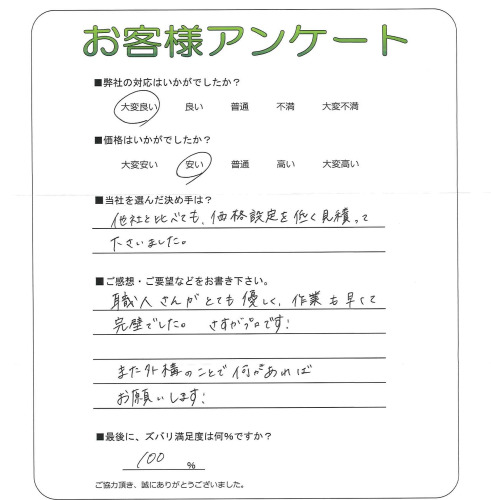 お客様アンケート
■弊社の対応はいかがでしたか？
大変良い 良い 普通 不満 大変不満
■価格はいかがでしたか？
大変安い 安い 普通 高い 大変高い
■当社を選んだ決め手は？
他社と比べても、価格設定を低く見積って
下さいました。
■ご感想・ご要望などをお書き下さい。
職人さんがとても優しく、作業も早くて
完璧でした。 さすがプロです!
また外構のことで何かあれば
お願いします!
■最後に、ズバリ満足度は何％ですか？
100 %
ご協力頂き、誠にありがとうございました。